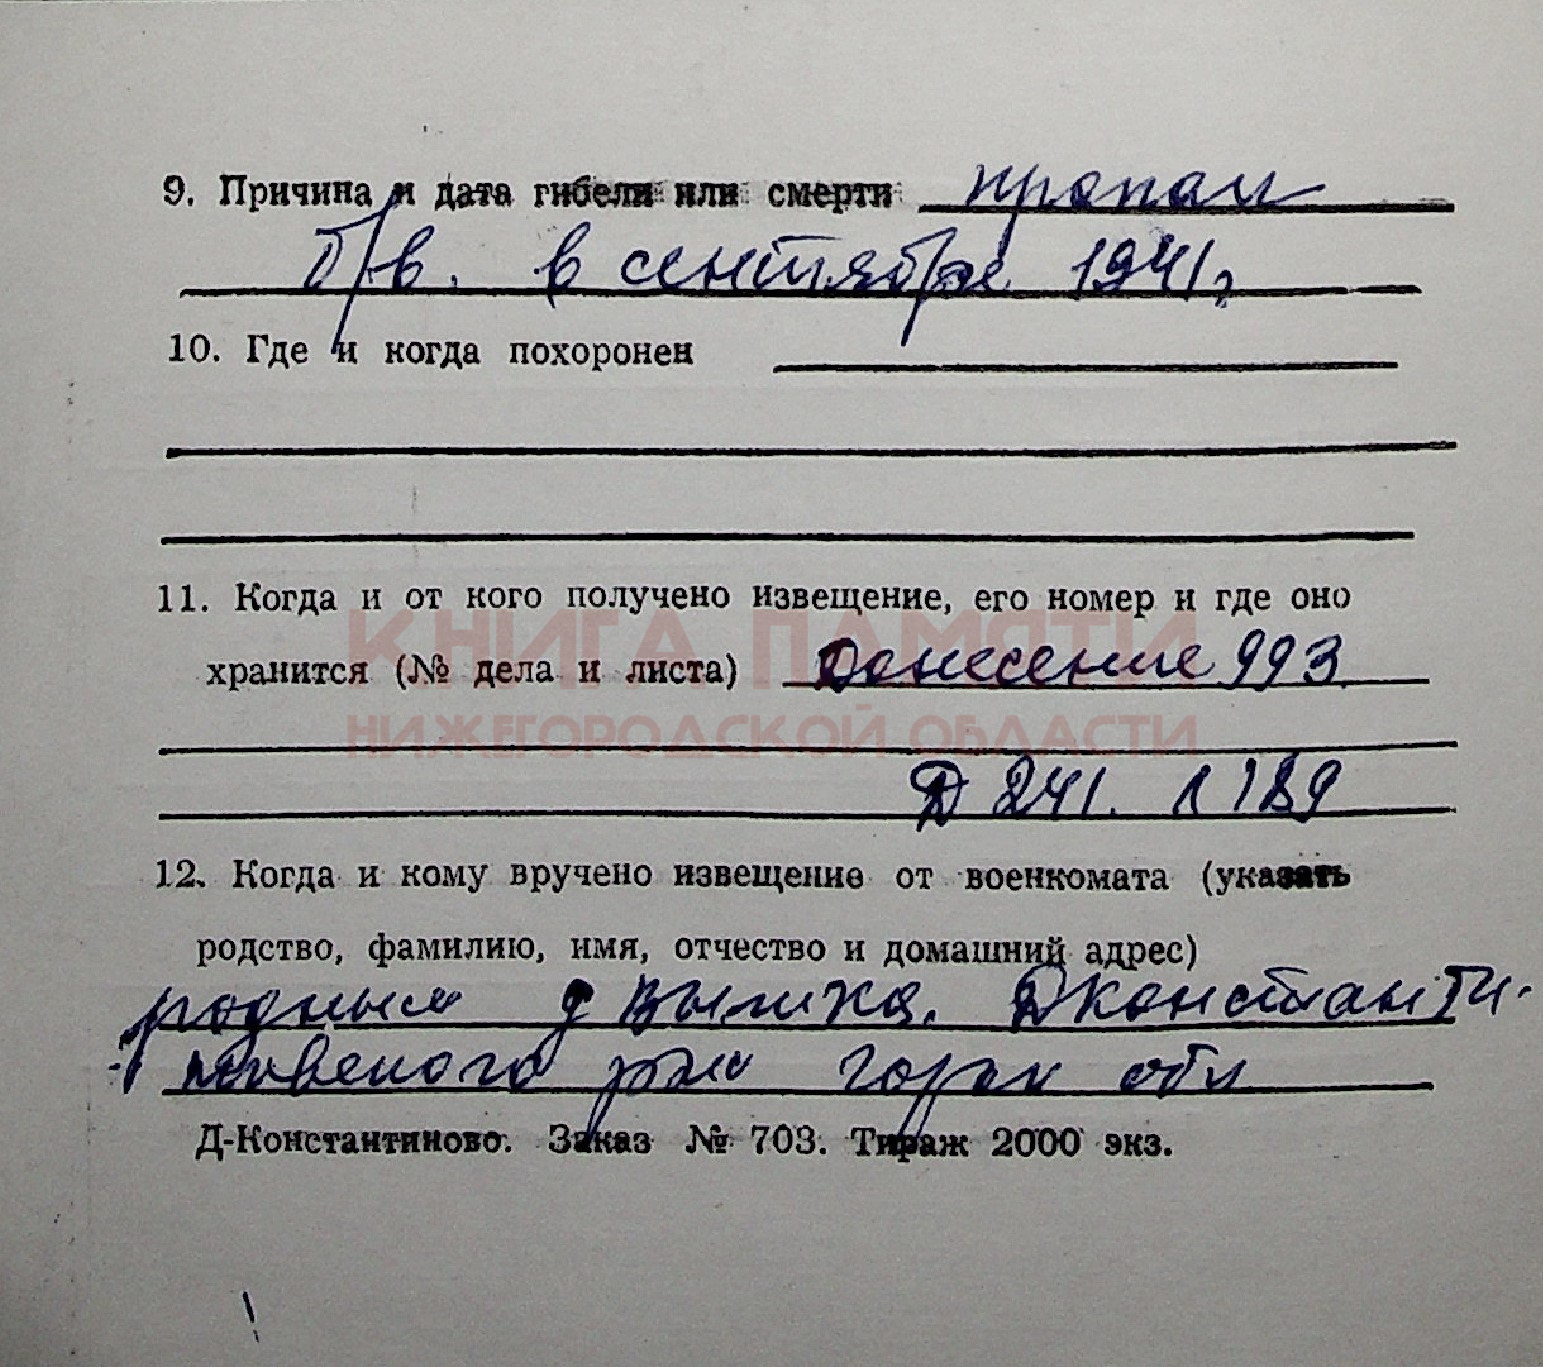 9. Причина и дата гибели или смерти пропал
б/в. в сентябре 1941г
10. Где и когда похоронен
11. Когда и от кого получено извещение, его номер и где оно
КНИГА ПАМЯТИ
хранится (№ дела и листа) Донесение 993
НИЖЕГОРОДСКОЙ ОБЛАСТИ
Д 241. л 189
12. Когда и кому вручено извещение от военкомата (указать
родство, фамилию, имя, отчество и домашний адрес)
родным д Д Константи-
горьк обл
Д-Константиново. Заказ № 703. Тираж 2000 экз.